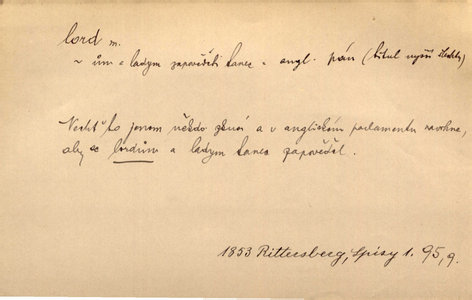 lord m.
~ům a ladym zapověděti tanec = angl. pán (titul vyšší šlechty)
Nechť to jenom někdo zkusí a v anglickém parlamentu navrhne,
aby se lordům a ladym tanec zapověděl.
1853 Rittersberg, Spisy 1. 95,9.